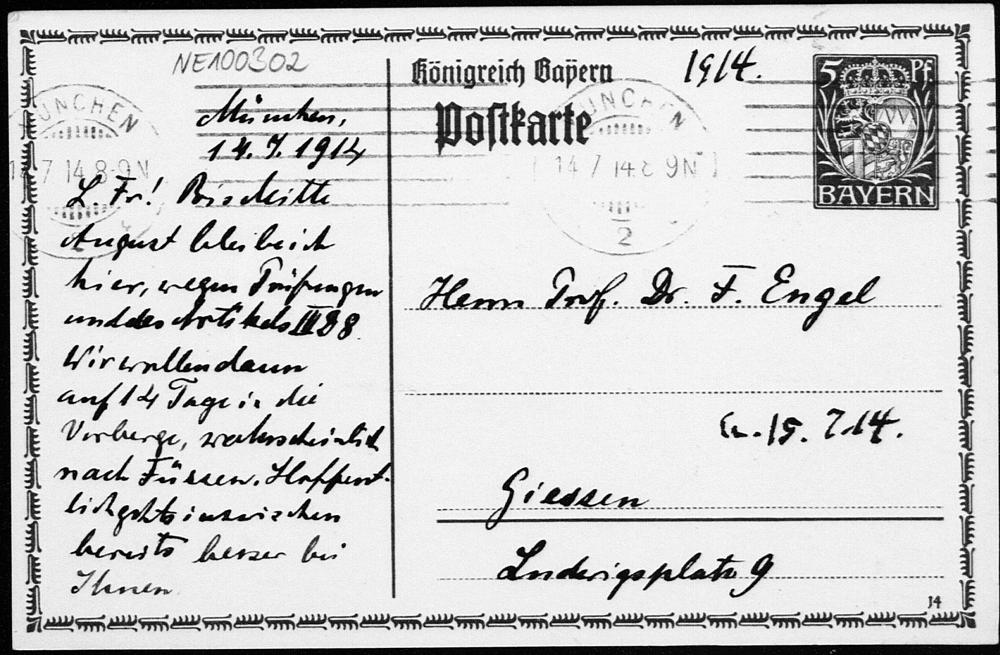 NE100302
München,
14.7.1914
L. Fr! Bis Mitte
August bleibe ich
hier, wegen Prüfungen
und des Artikels III D 8
Wir wollen dann
auf 14 Tage in die
Vorberge, wahrscheinlich
nach Füssen. Hoffent-
lich gehts inzwischen
bereits besser bei
Ihnen
Königreich Bayern
1914.
Postkarte
5 Pf
BAYERN
MÜNCHEN
14 7 14 8-9N
MÜNCHEN
14 7 14 8 9N
2
Herrn Prof. Dr. F. Engel
15.7.14.
Giessen
Ludwigsplatz 9
J4